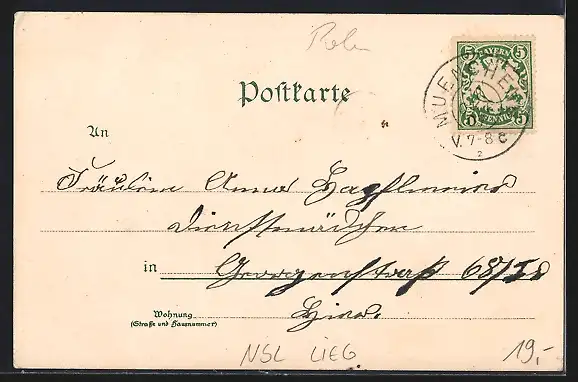 5 BAYERN 5
5 PFENNIG 5
MUENCHEN
V. 7-8
2
Postkarte
An
Fräulein Anna
Dienstmädchen
in Georgenstraße 68/I
Wohnung
(Straße und Hausnummer)
Hier.
NSL LIEG
19,-